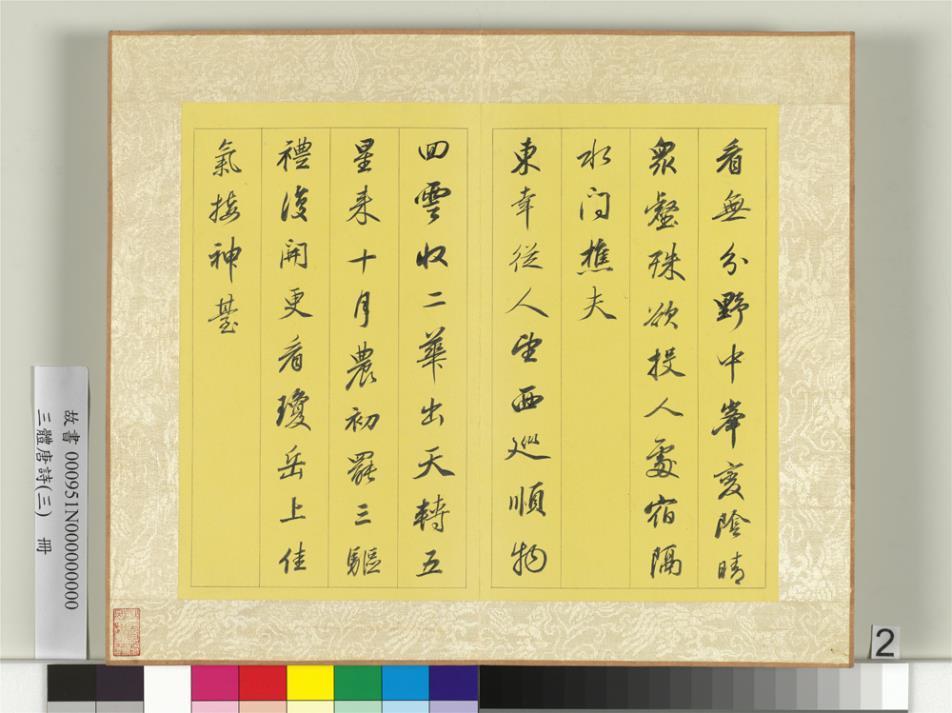 看無分野中峯変陰晴
衆壑殊欲投人處宿隔
水问樵夫
東幸從人望西巡順物
回雲收二華出天轉五
星来十月農初罷三驅
禮復開更看瓊岳上佳
氣接神臺
故書 000951N000000000
三體唐詩(三) 冊
2